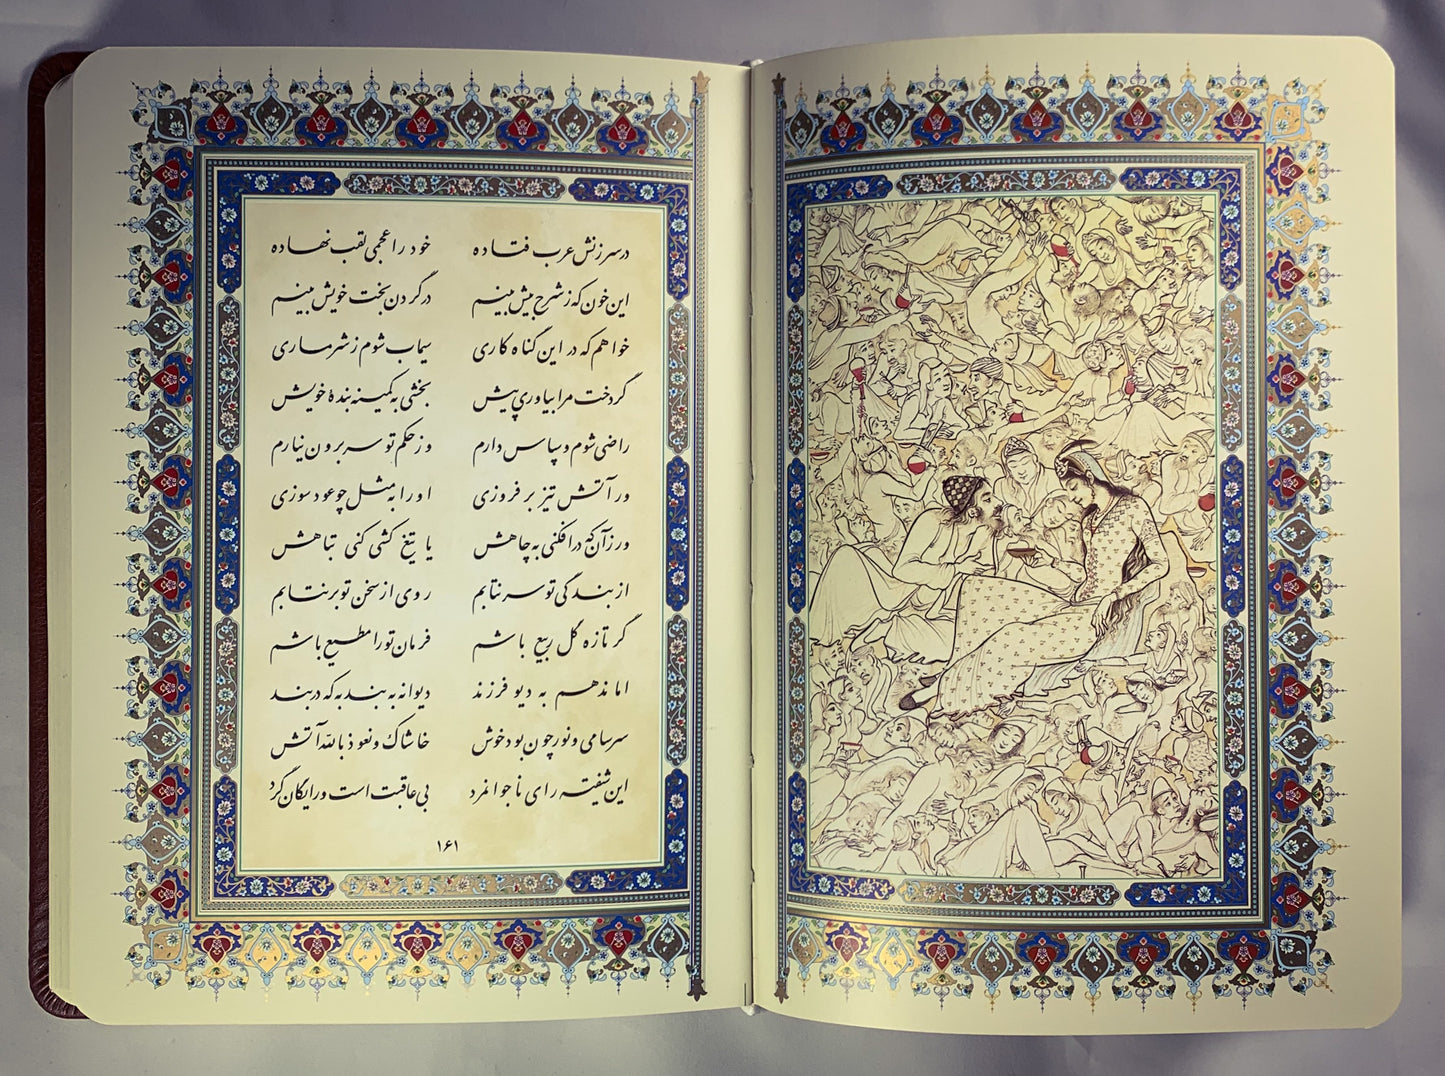 در سرزنش عرب فتاده خود را عجمی لقب نهاده
این خون که ز شرح بیش بینم در گردن بخت خویش بینم
خواهم که در این گناه کاری سیماب شوم ز شرمساری
گر دخت مرا بیاوری پیش بخشی به کمینه بنده خویش
راضی شوم و سپاس دارم وز حکم تو سر برون نیارم
ور آتش تیز بر فروزی او را به مثل چو عود سوزی
ور زآن که در افکنی به چاهش یا تیغ کشی کنی تباهش
از بندگی تو سر نتابم روی از سخن تو بر نتابم
گر تازه گل ربیع باشم فرمان تو را مطیع باشم
اما ندهم به دیو فرزند دیوانه به بند به که در بند
سرسامی و نور چون بود خوش خاشاک و نعوذ بالله آتش
این شیفته رای ناجوانمرد بی عاقبت است و رایگان گرد
۱۶۱